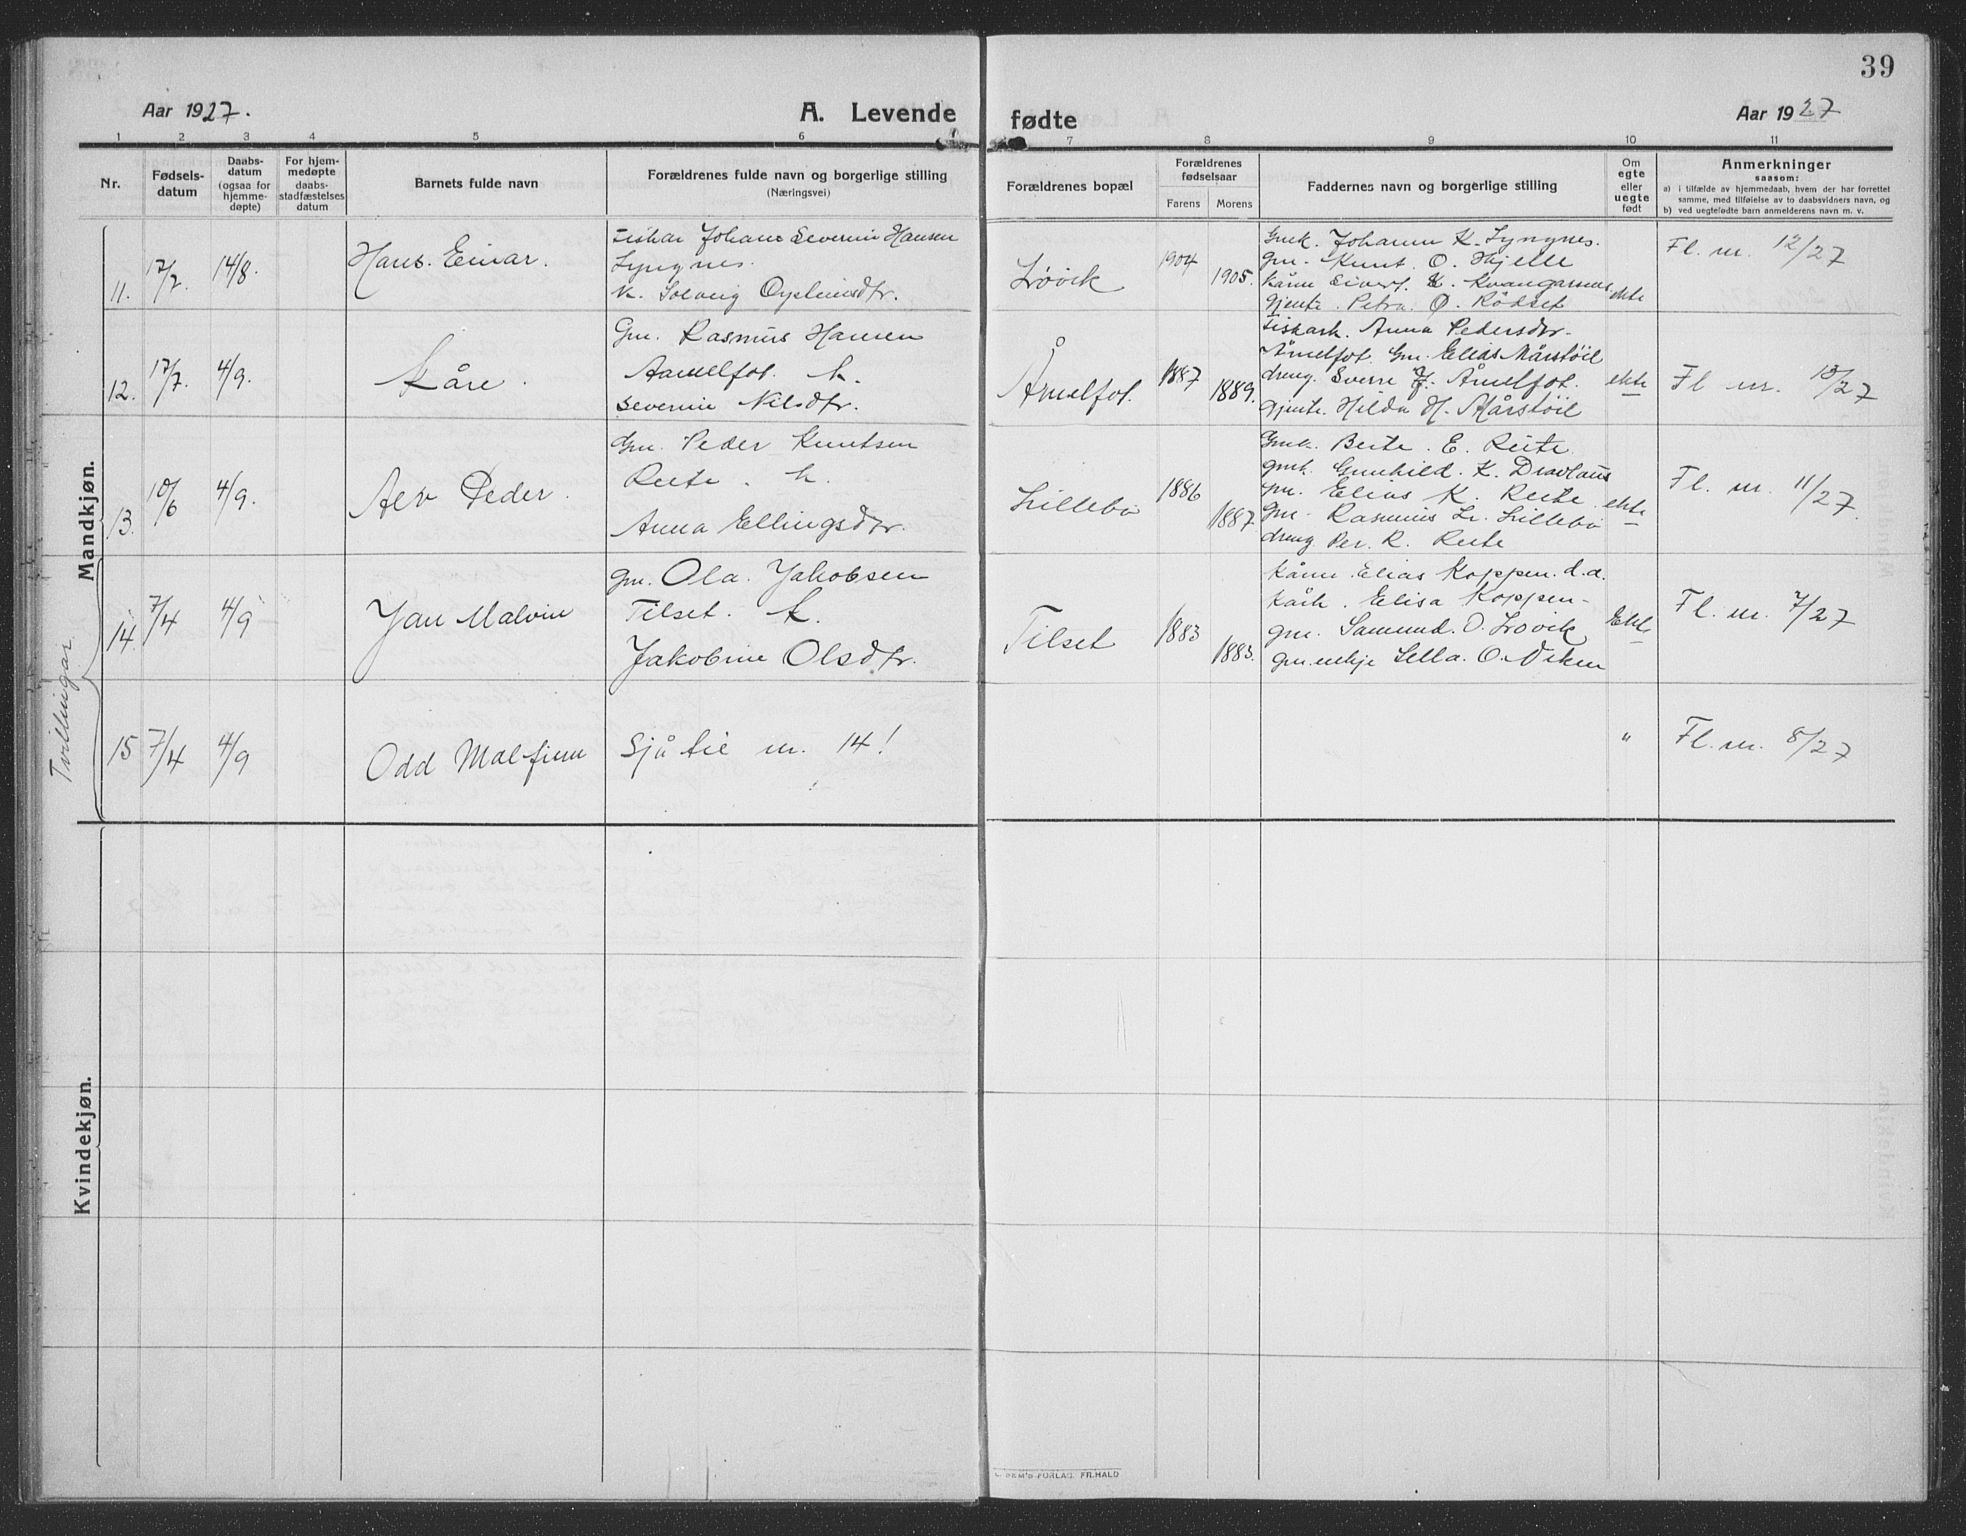 39
Aar 1927.
A. Levende
fødte
Aar 1927
1 2 3 4 5 6 7 8 9 10 11
Nr.
Fødsels-
datum
Daabs-
datum
(ogsaa for
hjemme-
døpte)
For hjem-
medøpte
daabs-
stadfæstelses
datum
Barnets fulde navn
Forældrenes fulde navn og borgerlige stilling
(Næringsvei)
Forældrenes bopæl
Forældrenes
fødselsaar
Farens Morens
Faddernes navn og borgerlige stilling
Om
egte
eller
uegte
født
Anmerkninger
saasom:
a) i tilfælde av hjemmedaab, hvem der har forrettet
samme, med tilføielse av to daabsvidners navn, og
b) ved uegtefødte barn anmelderens navn m. v.
Mandkjøn.
11. 17/7 14/8. Hans Einar.
Fiskar Johan Severin Hansen
Lyngnes.
k. Solveig
Løvik
1904 1905.
Gmk. Johanna K. Lyngnes.
gm. Knut. O. Hjelle
Kårm Sivert K. Kvangarsnes
gjente. Petra O. Rödset
ekte
Fl. nr. 12/27
12. 17/7 4/9. Kåre.
Gm. Rasmus Hansen
Aamelfot. k.
Severine Nilsdtr.
Åmelfot.
1887 1889.
Fiskark. Anna Pedersdtr.
Åmelfot. Gm. Elias Mårstöil
dreng. Sverre J. Åmelfot.
gjente. Hilda H. Mårstöil
ekte
Fl nr. 13/27
13. 10/6 4/9. Alv Peder.
Gm. Peder Knutsen
Reite. k.
Anna Ellingsdtr.
Lillebö
1886 1887.
Gmk. Beite. E. Reite
gmk. Gunhild. K. Dravlaus
gm. Elias K. Reite
Gm. Rasmus L. Lillebö
dreng Per. R. Reite
ekte
Fl. nr. 11/27.
Tvillingar
14. 7/4 4/9 Jan Malvin
gm. Ola. Jakobsen
Tilset. k.
Jakobine Olsdtr.
Tilset
1883 1883.
Kårm. Elias Koppen. d.a.
Kårk. Elisa Koppen
gm. Samund. O. Lövik
gm.enkje Sella. O. Viken
Ekte
Fl. nr. 7/27
15 7/4 4/9 Odd Malfinn
Sjå til nr. 14!
"
Fl. nr. 8/27
Kvindekjøn.
FORLAG. FR.HALD